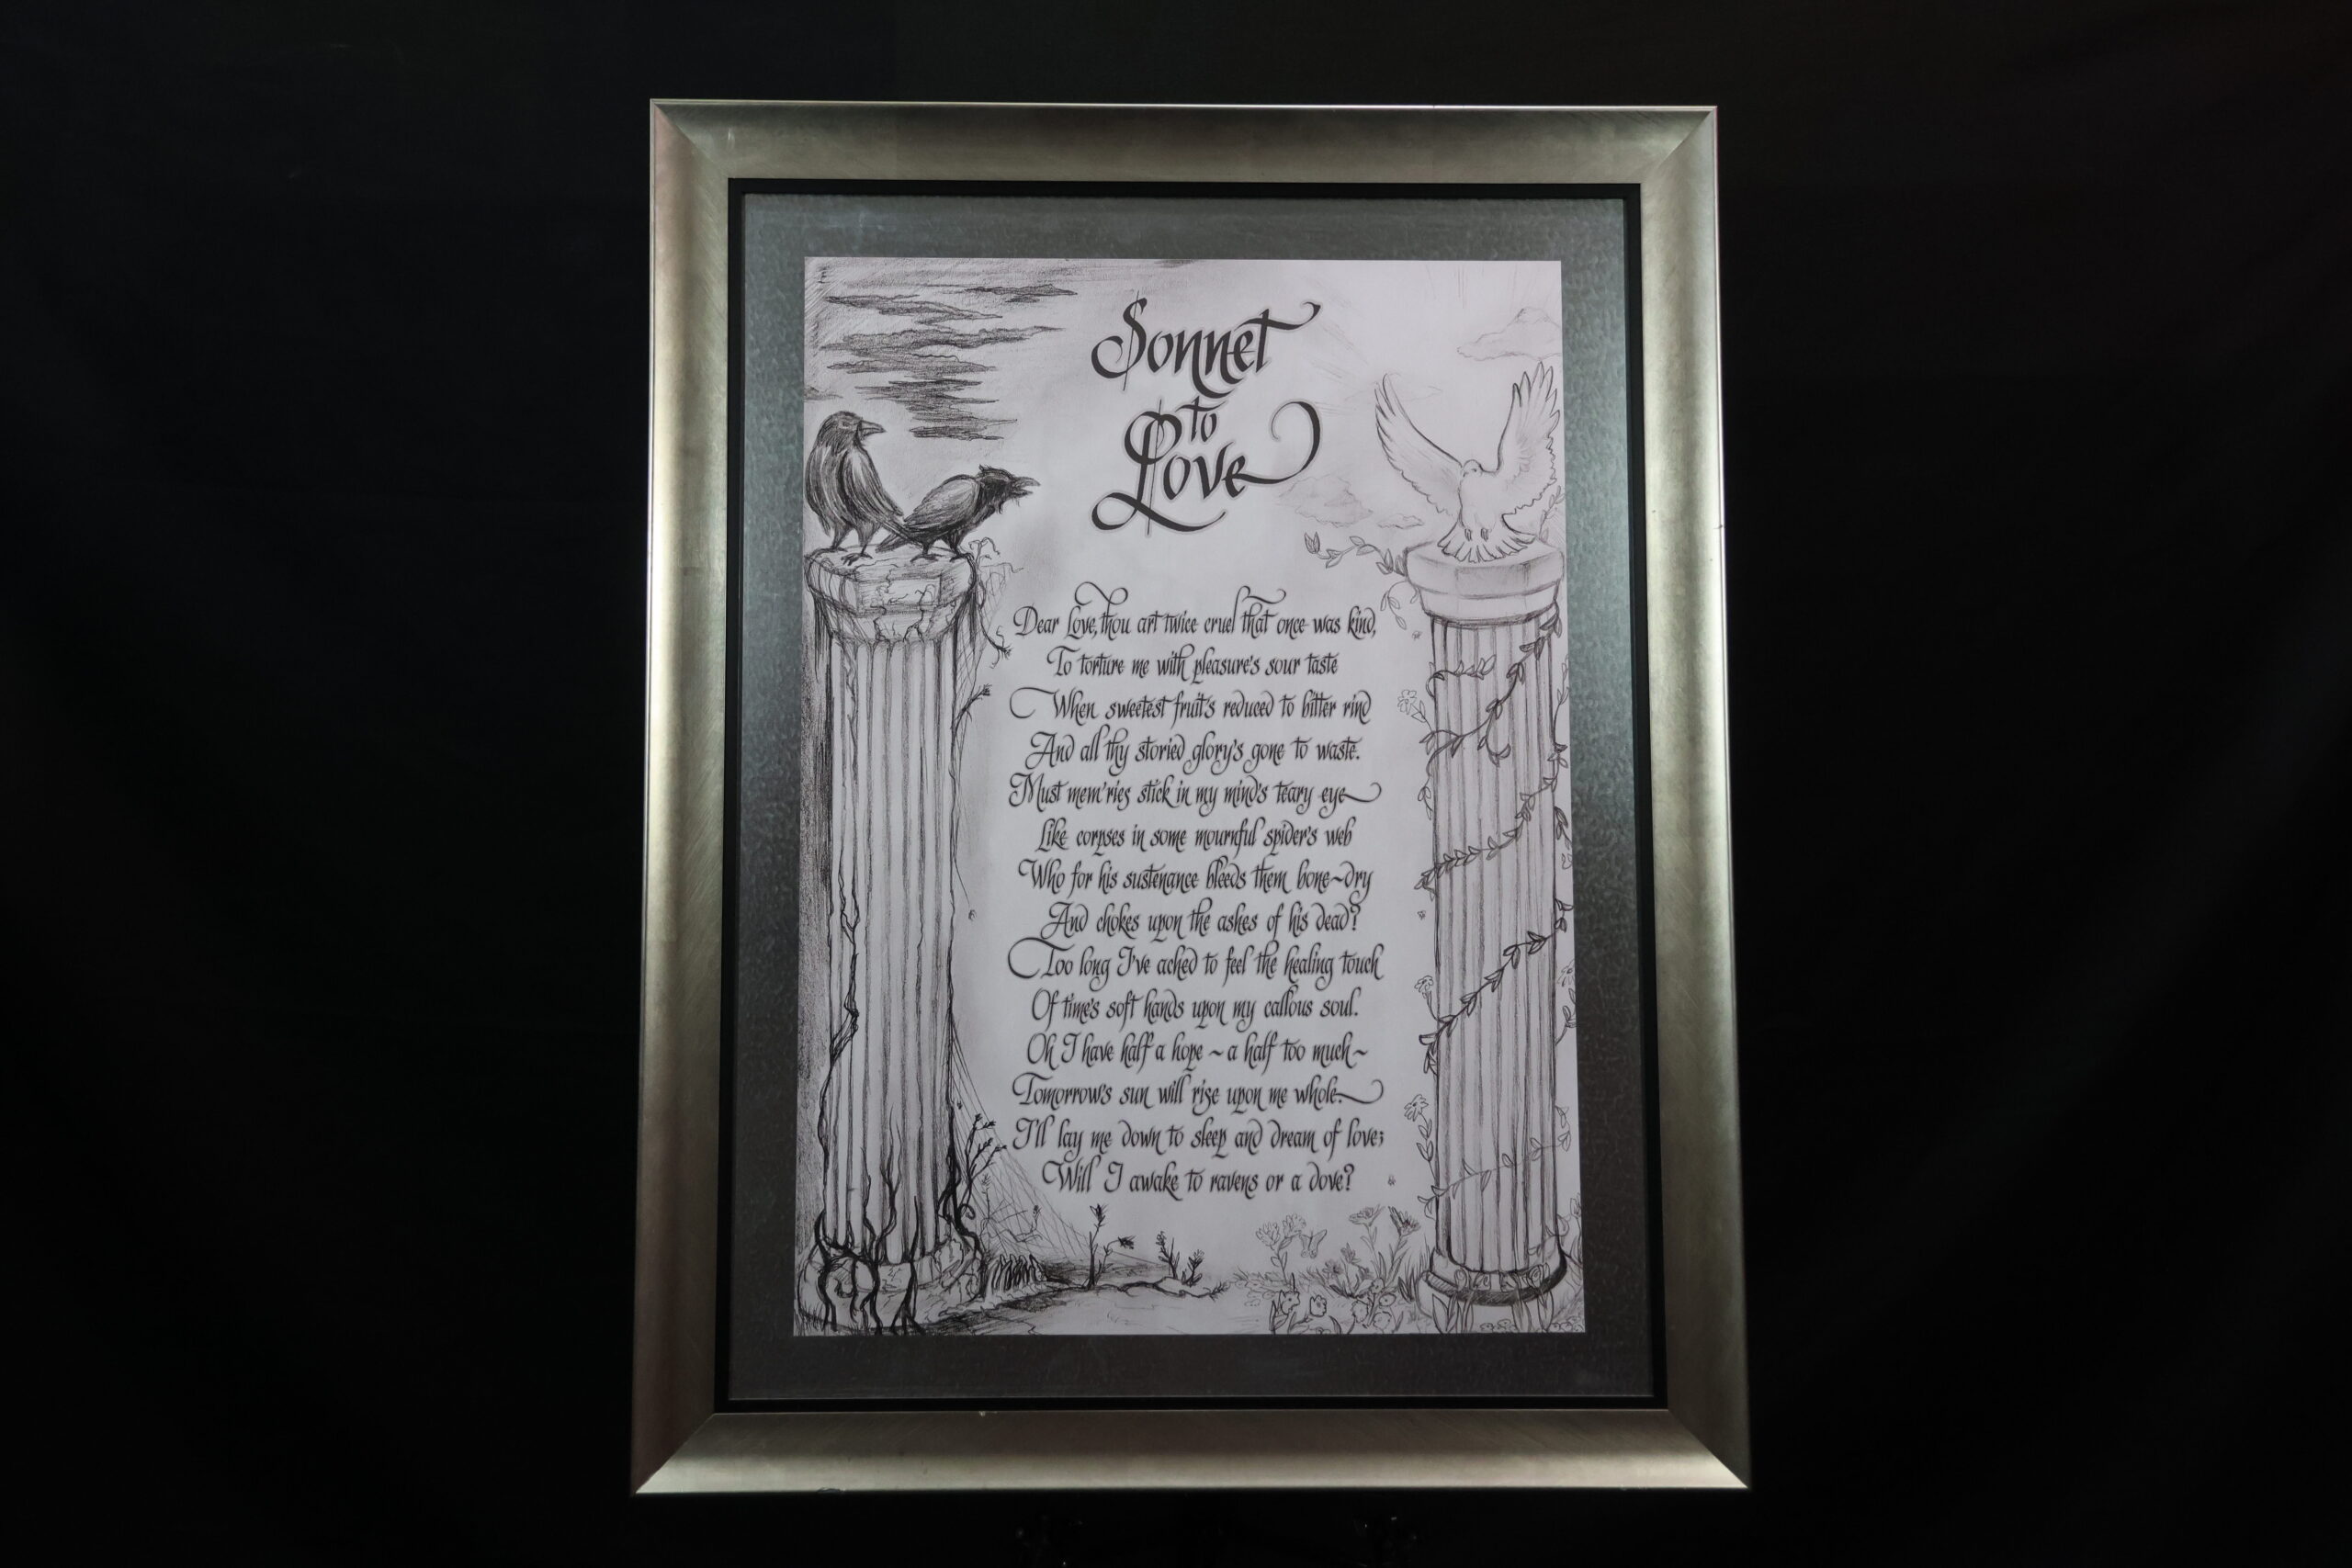 Sonnet
to
Love
Dear Love, thou art twice cruel that once was kind,
To torture me with pleasure's sour taste
When sweetest fruit's reduced to bitter rind
And all thy storied glory's gone to waste.
Must mem'ries stick in my mind's teary eye
Like corpses in some mournful spider's web
Who for his sustenance bleeds them bone~dry
And chokes upon the ashes of his dead?
Too long I've ached to feel the healing touch
Of time's soft hands upon my callous soul.
Oh I have half a hope ~ a half too much ~
Tomorrow's sun will rise upon me whole.
I'll lay me down to sleep and dream of love;
Will I awake to ravens or a dove?